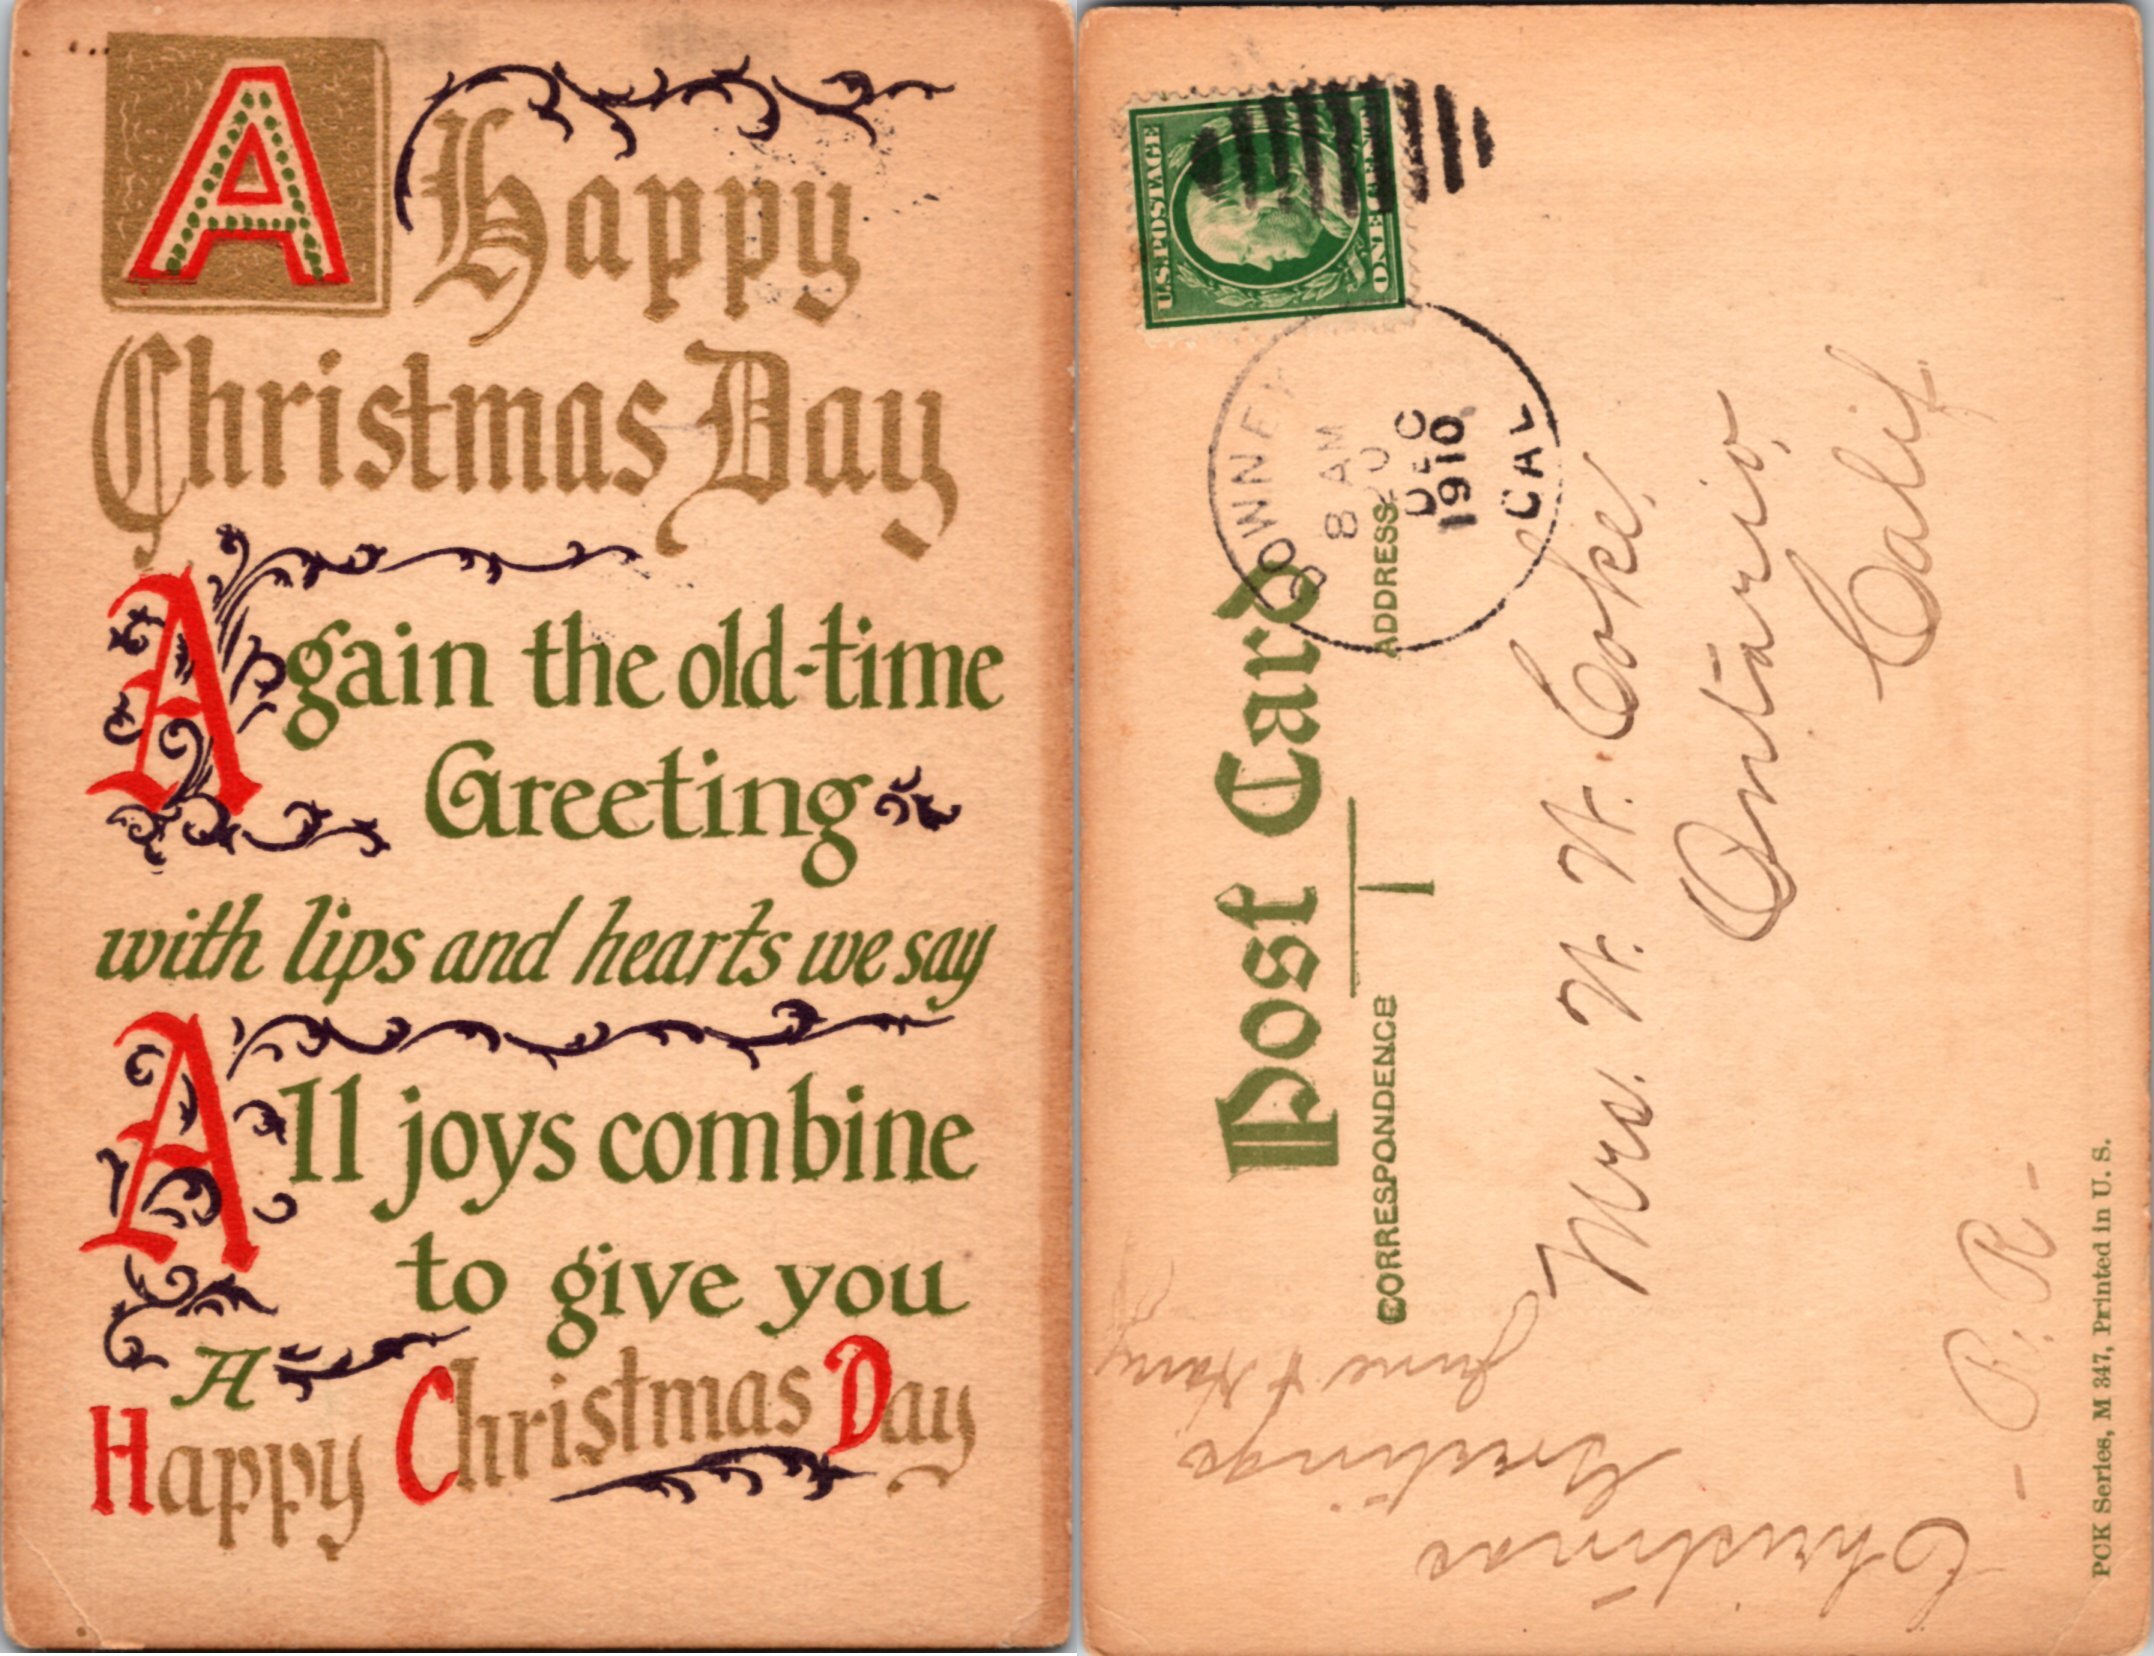 A Happy
Christmas Day
Again the old-time
Greeting
with lips and hearts we say
All joys combine
to give you
A
Happy Christmas Day
U.S. POSTAGE
ONE CENT
DOWNEY
8 AM
20
DEC
1910
CAL
Post Card
CORRESPONDENCE
ADDRESS
Mrs. W. W. Coke,
Ontario,
Calif
R. R.
Christmas
Greetings
June &
PCK Series, M 347, Printed in U. S.